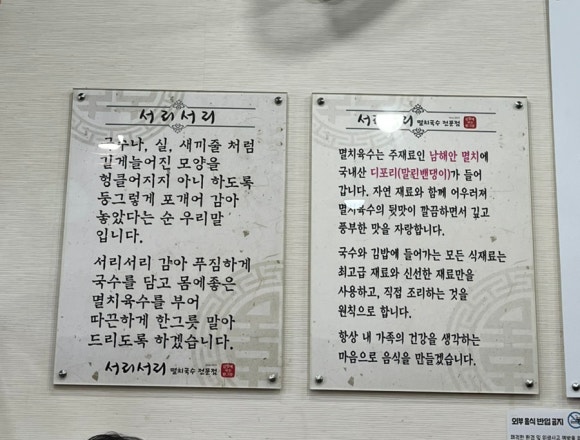 서리서리
국수나, 실, 새끼줄 처럼
길게늘어진 모양을
헝클어지지 아니 하도록
둥그렇게 포개어 감아
놓았다는 순 우리말
입니다.
서리서리 감아 푸짐하게
국수를 담고 몸에좋은
멸치육수를 부어
따끈하게 한그릇 말아
드리도록 하겠습니다.
서리서리 멸치국수 전문점
서리서리 멸치국수 전문점
멸치육수는 주재료인 남해안 멸치에
국내산 디포리(말린밴댕이)가 들어
갑니다. 자연 재료와 함께 어우러져
멸치국수의 뒷맛이 깔끔하면서 깊고
풍부한 맛을 자랑합니다.
국수와 김밥에 들어가는 모든 식재료는
최고급 재료와 신선한 재료만을
사용하고, 직접 조리하는 것을
원칙으로 합니다.
항상 내 가족의 건강을 생각하는
마음으로 음식을 만들겠습니다.
외부 음식 반입 금지